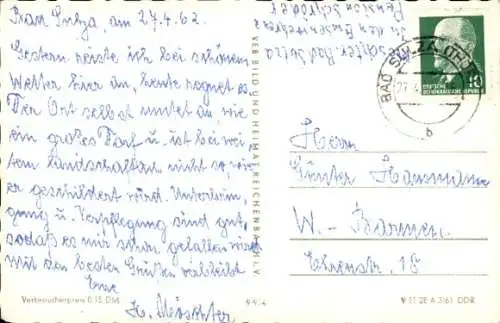 Bad Sulza, am 27.4.62.
Gestern reiste ich bei schönem
Wetter hier an, heute regnet es.
Der Ort selbst mutet an, wie
ein großes Dorf u. ist bei wei-
tem landschaftlich nicht so, wie
er geschildert wird. Unterbrin-
gung u. Verpflegung sind gut,
sodaß es mir schon gefallen wird.
Mit den besten Grüßen verbleibt
Eure
H.
Verbraucherpreis 0,15 DM
9-9-4
VEB BILD UND HEIMAT REICHENBACH I. V.
Bad Sulza
In den Emsenwiesen
Pension Schröder
BAD SULZA (THÜR)
27.4.
b
DEUTSCHE
DEMOKRATISCHE REPUBLIK
10
Herrn
Günter Hausmann
W.-Barmen
Ehrenstr. 18
V 11 28 A 3/61 DDR